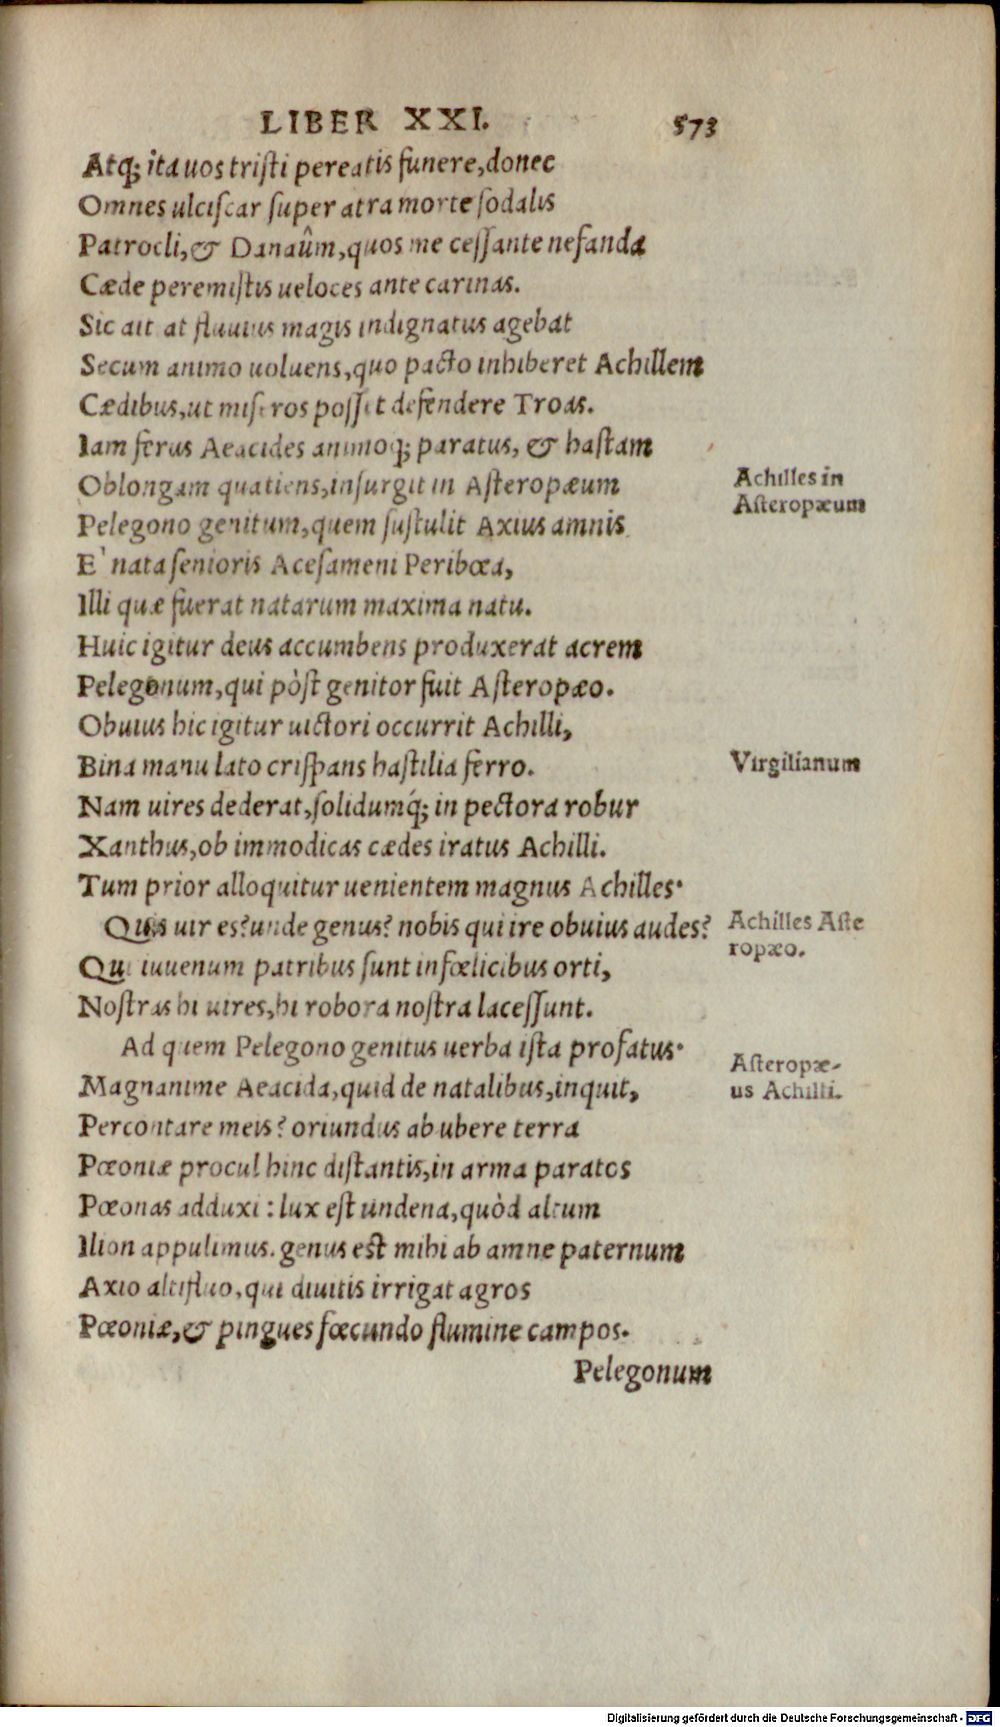 LIBER XXI. 573
Atq; ita uos tristi pereatis funere, donec
Omnes ulciscar super atra morte sodalis
Patrocli, & Danaûm, quos me cessante nefanda
Cæde peremistis ueloces ante carinas.
Sic ait at fluuius magis indignatus agebat
Secum animo uoluens, quo pacto inhiberet Achillem
Cædibus, ut miseros posset defendere Troas.
Iam ferus Aeacides animoq; paratus, & hastam
Oblongam quatiens, insurgit in Asteropæum
Achilles in
Asteropæum
Pelegono genitum, quem sustulit Axius amnis
E` nata senioris Acesameni Peribœa,
Illi quæ fuerat natarum maxima natu.
Huic igitur deus accumbens produxerat acrem
Pelegonum, qui pòst genitor fuit Asteropæo.
Obuius hic igitur uictori occurrit Achilli,
Bina manu lato crispans hastilia ferro.
Virgilianum
Nam uires dederat, solidumq́; in pectora robur
Xanthus, ob immodicas cædes iratus Achilli.
Tum prior alloquitur uenientem magnus Achilles·
Quis uir es? unde genus? nobis qui ire obuius audes?
Achilles Aste
ropæo.
Qui iuuenum patribus sunt infœlicibus orti,
Nostras hi uires, hi robora nostra lacessunt.
Ad quem Pelegono genitus uerba ista profatus·
Asteropæ-
us Achilli.
Magnanime Aeacida, quid de natalibus, inquit,
Percontare meis? oriundus ab ubere terra
Pœoniæ procul hinc distantis, in arma paratos
Pœonas adduxi: lux est undena, quòd altum
Ilion appulimus. genus est mihi ab amne paternum
Axio altifluo, qui diuitis irrigat agros
Pœoniæ, & pingues fœcundo flumine campos.
Pelegonum
Digitalisierung gefördert durch die Deutsche Forschungsgemeinschaft - DFG